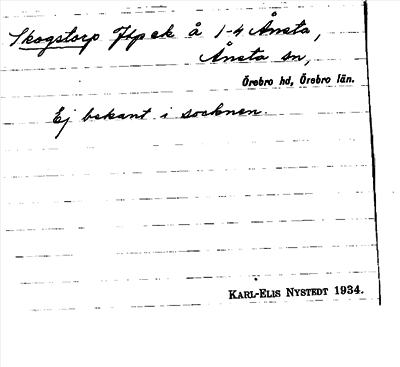 Skogstorp Jfpek å 1-4 Ånsta,
Ånsta sn,
Örebro hd, Örebro län.
Ej bekant i socknen.
KARL-ELIS NYSTEDT 1934.